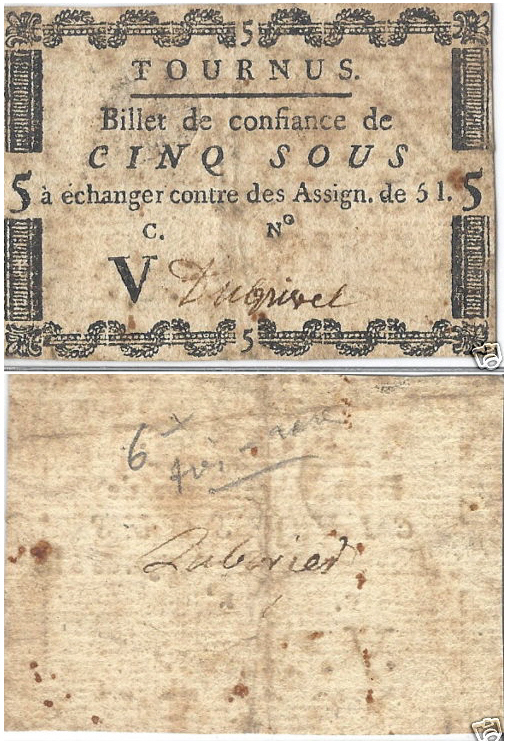 5
TOURNUS.
Billet de confiance de
CINQ SOUS
5 à échanger contre des Assign. de 5 l. 5
C. Nº
V Dugrivel
5
6
très rare